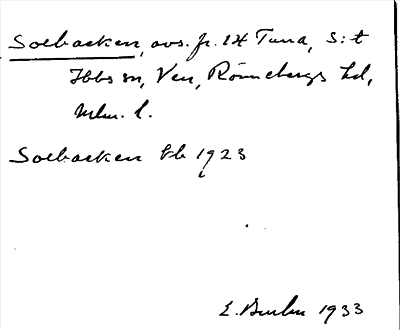 Solbacken, avs. fr. 14 Tuna, S:t
Ibbs sn, Ven, Rönnebergs hd,
Mlm. l.
Solbacken kb 1923
E. 1933